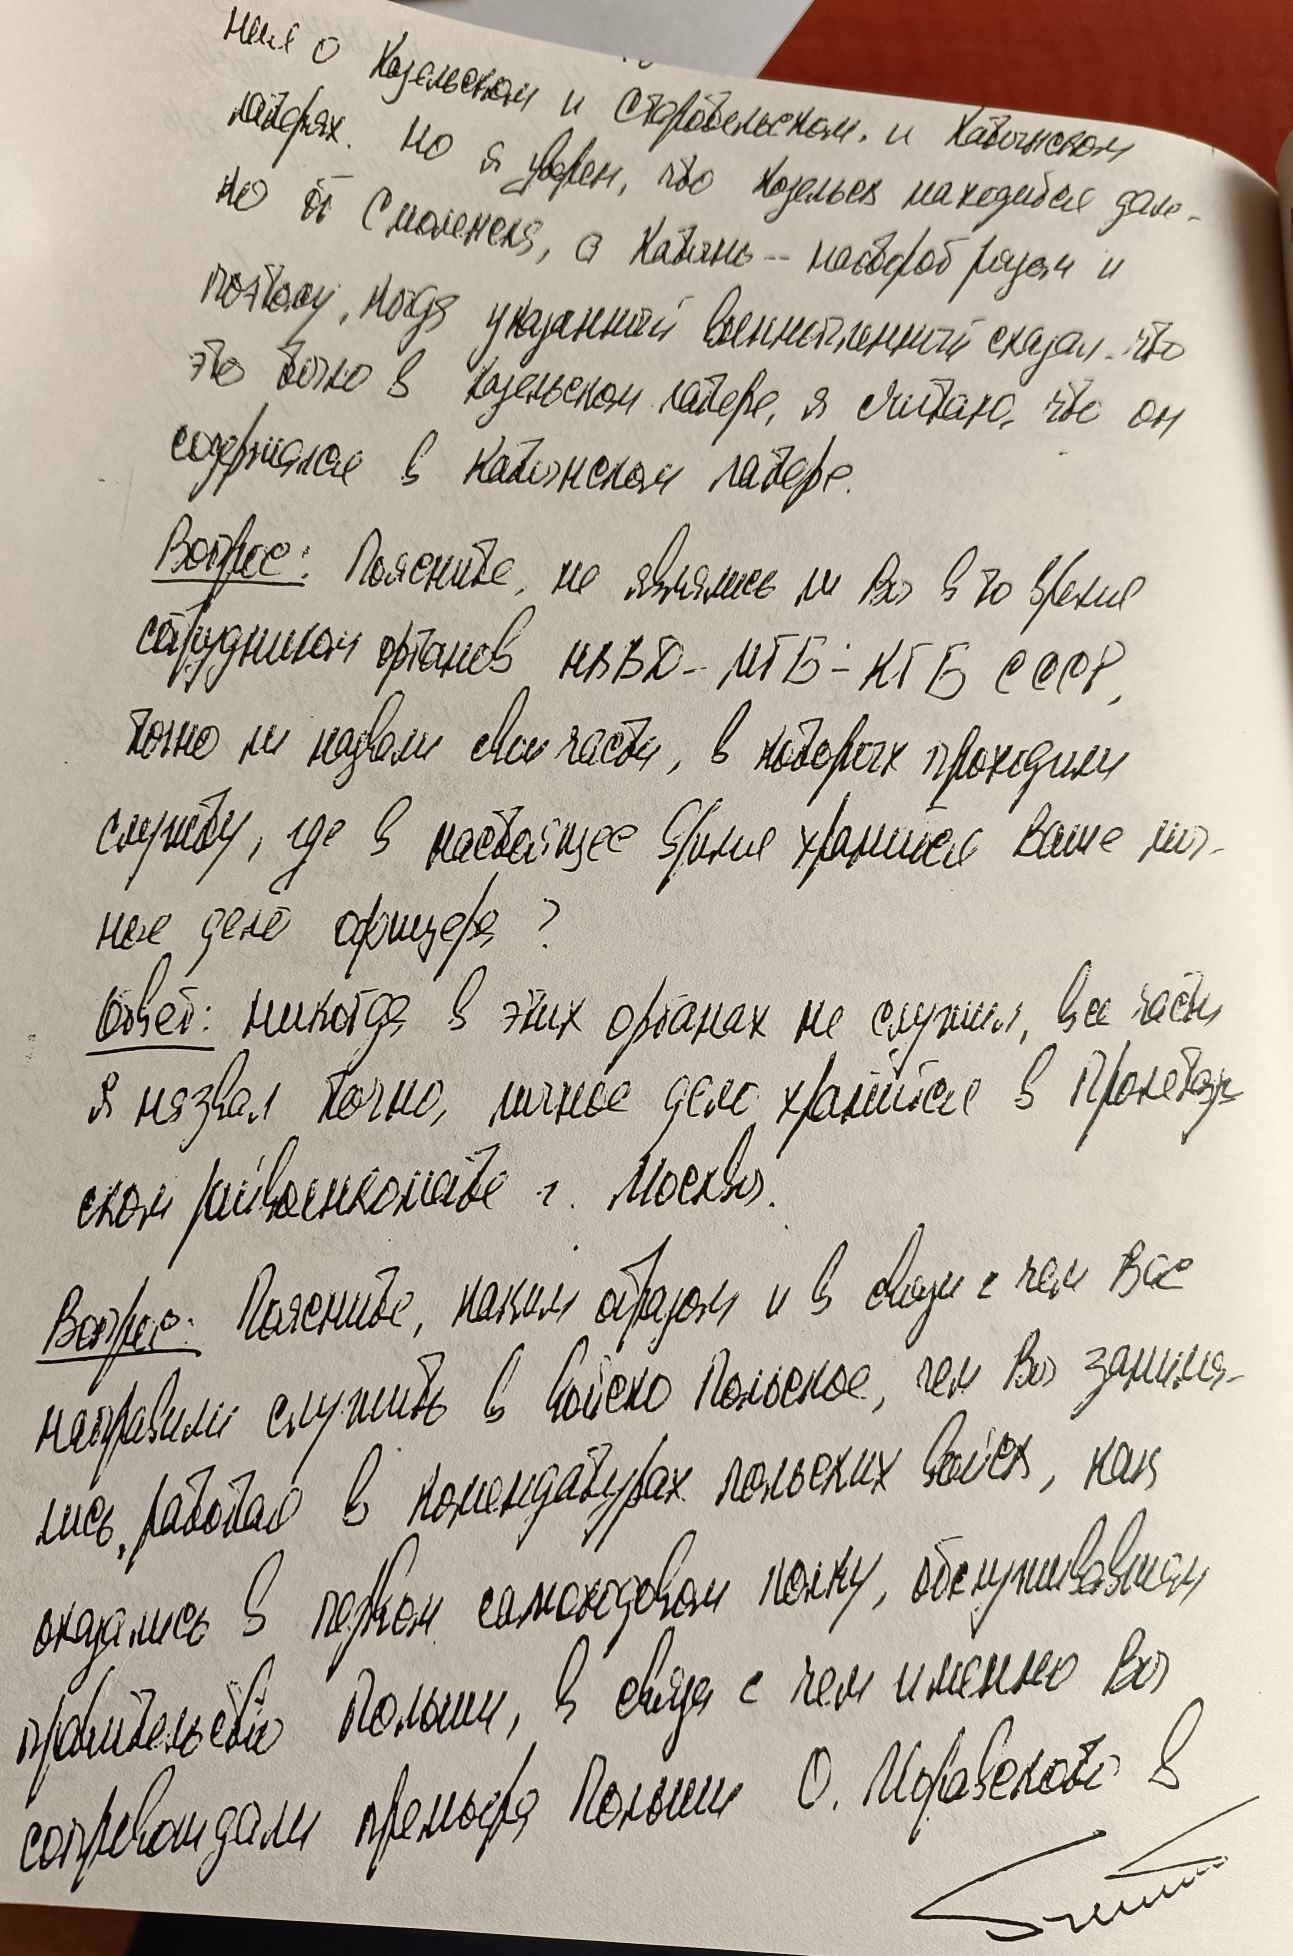 ния о Козельском и Старобельском и Катынском
лагерях. Но я уверен, что Козельск находится дале-
ко от Смоленска, а Катынь - наоборот рядом и
поэтому, когда указанный военнопленный сказал, что
это было в Козельском лагере, я считаю, что он
содержался в Катынском лагере.
Вопрос: Поясните, не являлись ли Вы в то время
сотрудником органов НКВД - МГБ - КГБ СССР,
точно ли назвали свои части, в которых проходили
службу, где в настоящее время хранится Ваше лич-
ное дело офицера?
Ответ: никогда в этих органах не служил, все части
я назвал точно, личное дело хранится в Пролетар-
ском райвоенкомате г. Москвы.
Вопрос: Поясните, каким образом и в связи с чем Вас
направили служить в Войско Польское, чем Вы занима-
лись, работая в комендатурах польских войск, как
оказались в первом самоходном полку, обслуживавшем
правительство Польши, в связи с чем именно Вы
сопровождали премьера Польши О. Моравского в